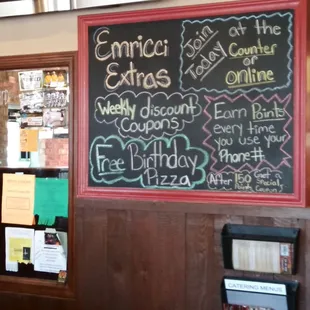 Emricci
Extras
Join
Today
at the
Counter
or
online
Weekly discount
Coupons
Free Birthday
Pizza
Earn Points
every time
you use
your
Phone#
After 150
Points
Get a
Special
CATERING MENUS